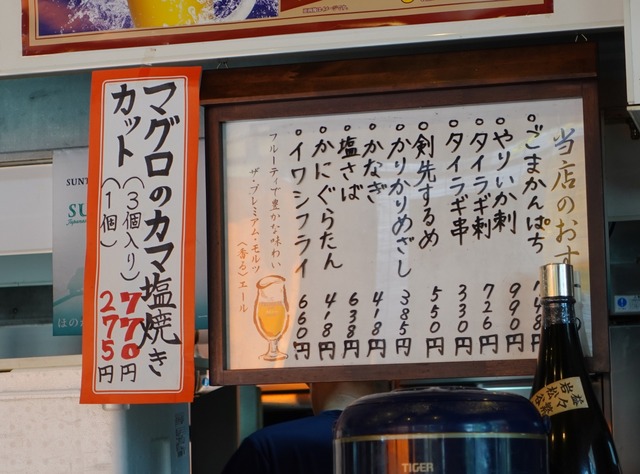 当店のおす
○ごまかんぱち 748
○やりいか刺 990円
○タイラギ刺 726円
○タイラギ串 330円
○剣先するめ 550円
○かりかりめざし 385円
○かなぎ 418円
○塩さば 638円
○かにぐらたん 418円
○イワシフライ 660円
フルーティで豊かな味わい
ザ・プレミアム・モルツ
〈香る〉エール
マグロのカマ塩焼き
カット
(3個入り) 770円
(1個) 275円
SUNT
TIGER